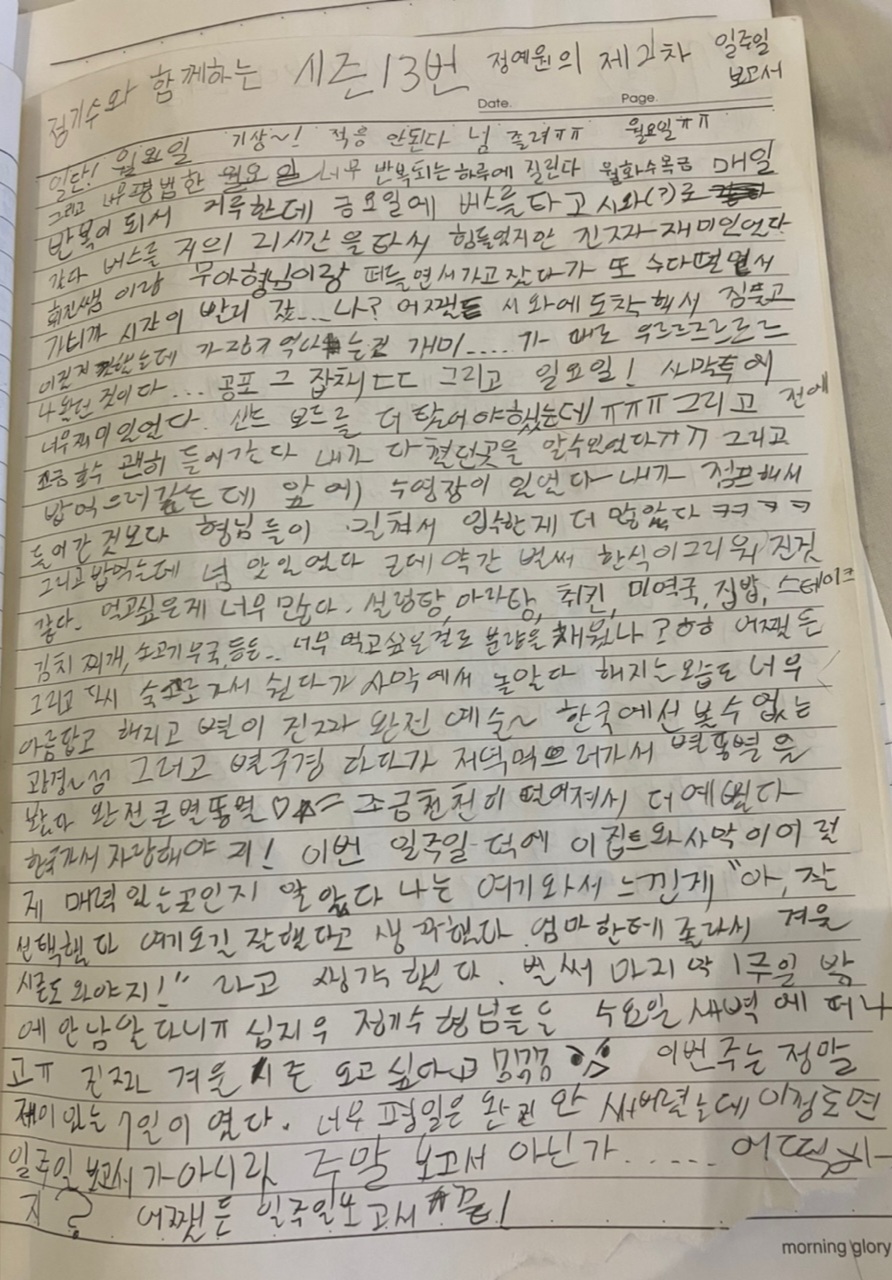 정기수와 함께하는 시즌13번 정예원의 제2차 일주일
보고서
Date. Page.
일단! 월요일 기상~! 적응 안된다 넘 졸려ㅠㅠ 월요일ㅠㅠ
그리고 너무평범한 월요일 너무 반복되는하루에 질린다 월화수목금 매일
반복이 되서 지루한데 금요일에 버스를타고 시와(?)로
갔다 버스를 저의 21시간 을 타서 힘들었지만 진짜 재미있었다
희진쌤 이랑 무아형님이랑 떠들면서가고 잤다가 또 수다떨면서
가니까 시간이 빨리 갔....나? 어쨌든 시와에 도착해서 짐풀고
했는데 가장기억나는건 개미.... 가 떼로 우르르르르르르
나왔던 것이다... 공포 그 잡채ㄷㄷ 그리고 일요일! 사막투어
너무재미있었다. 샌드 보드를 더 탔어야했는데ㅠㅠㅠ그리고 전에
소금호수 괜히 들어갔다 내가 다 쩔던곳을 알수있었다ㅠㅠ 그리고
밥먹으러갔는데 앞에 수영장이 있었다 내가 점프해서
들어간것보다 형님들이 밀쳐서 입수한게 더 많았다 ㅋㅋㅋㅋ
그리고밥먹는데 넘 맛있었다 근데 약간 벌써 한식이그리워진것
같다. 먹고싶은게 너무 많다. 설렁탕, 마라탕, 취킨, 미역국, 집밥, 스테이크
김치찌개, 소고기무국,등등.. 너무 먹고싶은걸로 분량을 채웠나?ㅎㅎ 어쨌든
그리고 다시 숙소로 가서 쉰다가 사막에서 놀았다 해지는모습도 너무
아름답고 해지고 별이 진짜 완전 예술~ 한국에선 볼수없는
광경~섬 그러고 별구경 하다가 저녁먹으러가서 별똥별을
봤다 완전큰별똥별♡☆= 조금천천히 떨어져서 더예뻤다
한국가서 자랑해야 지! 이번 일주일 덕에 이집트와사막이어렇
게 매력있는곳인지 알았다 나는 여기와서 느낀게 "아, 잘
선택했다 여기오길 잘했다고 생각했다 엄마한테졸라서 겨울
시즌도 와야지!" 라고 생각했다. 벌써 마지막 1주일 밖
에 안남았다니ㅠ 심지우 정기수 형님들은 수요일새벽에 떠나
고ㅠ 진짜 겨울시즌 오고싶다고 이번주는 정말
재미있는 7일이 였다. 너무 평일은 완전 안 써버렸는데 이정도면
일주일 보고서가아니라 주말 보고서 아닌가...... 어떡하-
지? 어쨌든 일주일보고서 끝!
morning glory